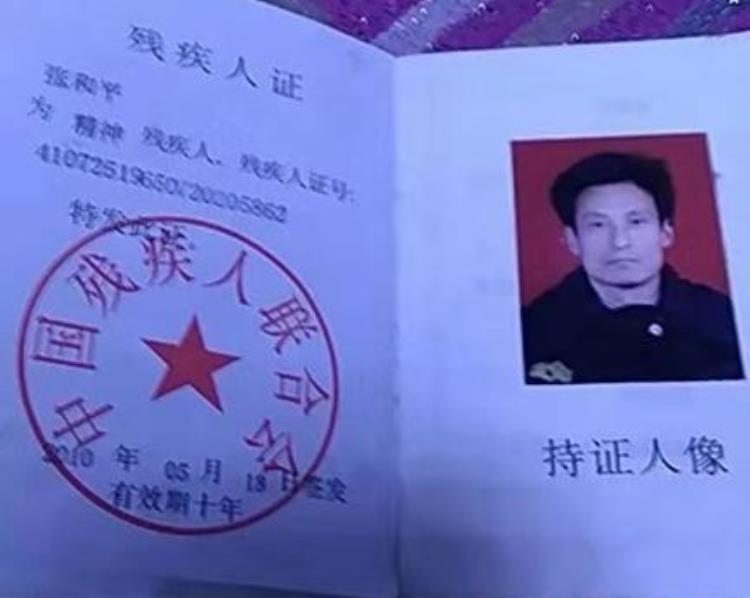 残疾人证
张和平
为 精神 残疾人、残疾人证号:
特发此证
中国残疾人联合会
2010 年 05 月 18 日签发
有效期十年
持证人像